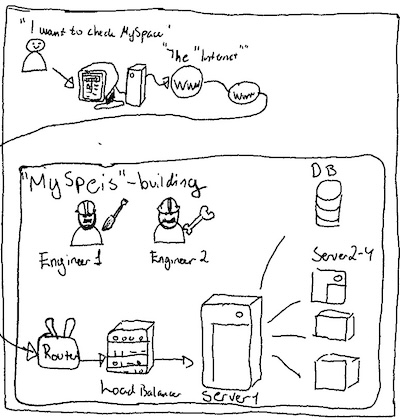 "I want to check MySpace"
"The "Internet""
www
www
"MySpeis"-building
DB
Engineer 1
Engineer 2
Server2-4
Router
Load Balancer
Server1